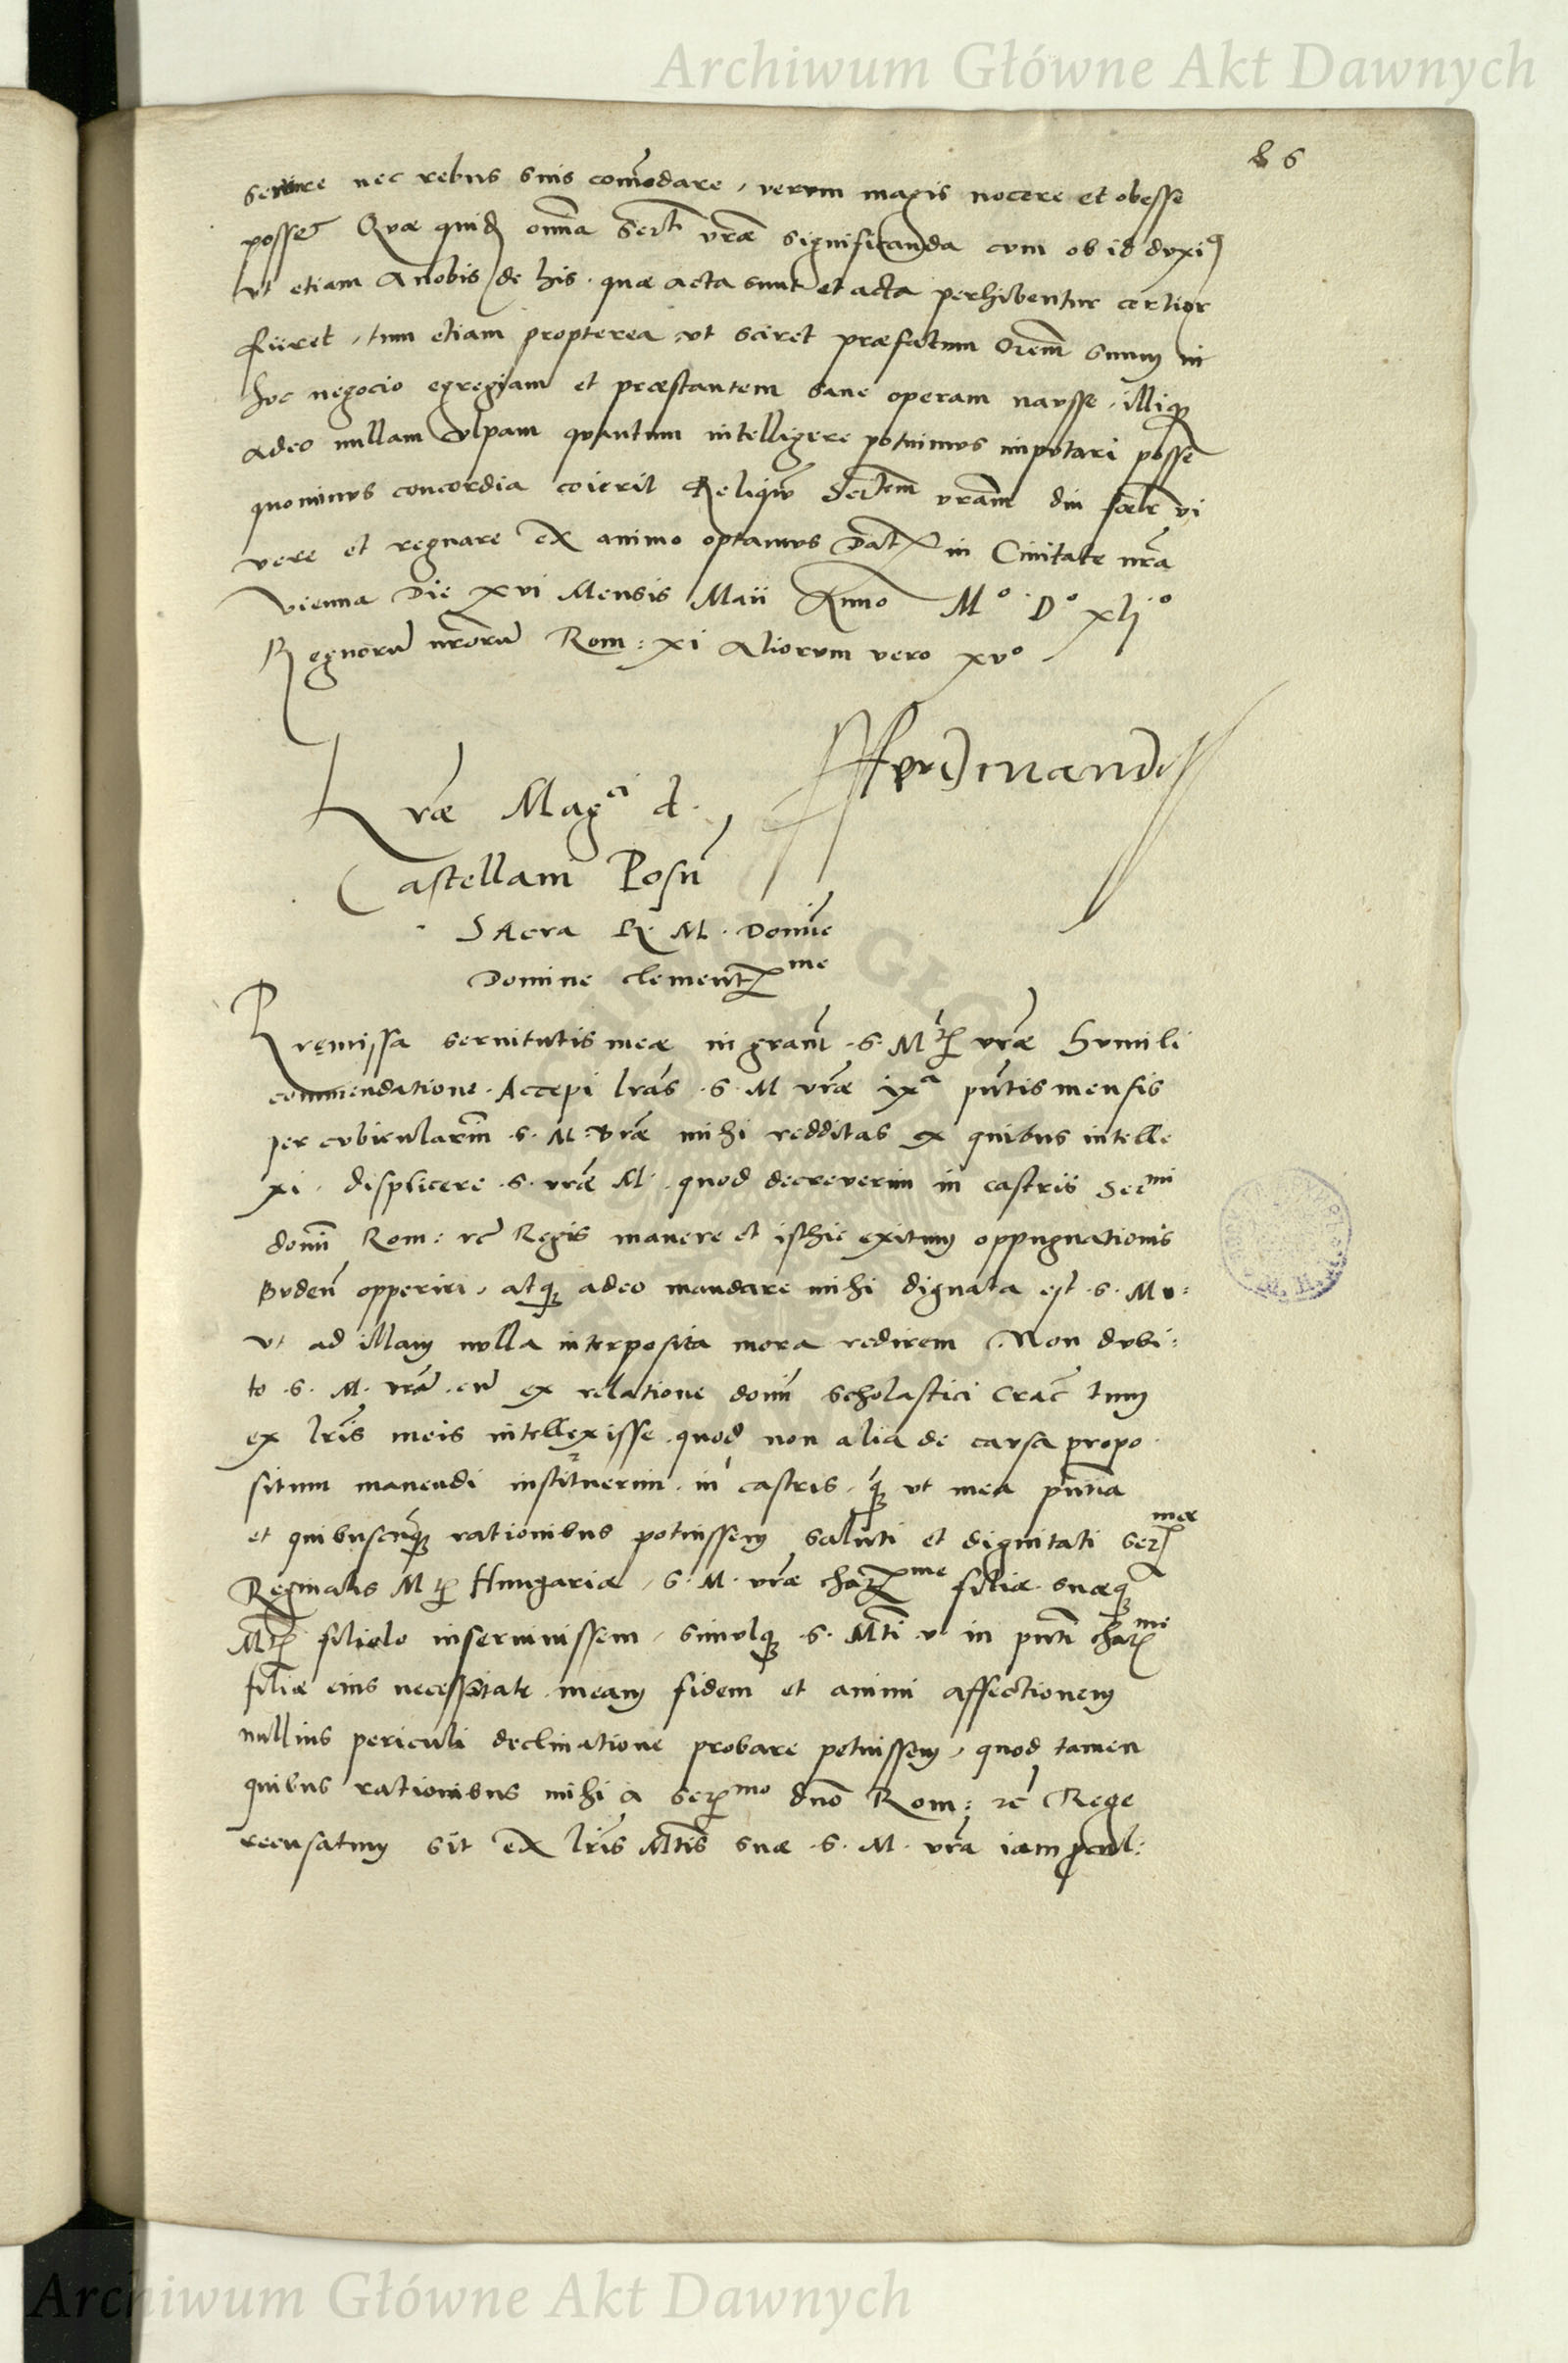 Archiwum Główne Akt Dawnych
86
servire nec rebus suis com̃odare, verum magis nocere et obesse
posset Quæ quid̃ om̃ia Serti vr̃æ significanda cum ob id duxim9
ut etiam a nobis de his quæ acta sunt et acta perhibentur certior
fieret, tum etiam propterea ut sciret præfatum Orem̃ suum in
hoc negocio egregiam et præstantem sane operam navasse, illiq3
adeo nullam culpam quantum intelligere potuimus imputari posse
quominus concordia coierit Reliquũ Sertem̃ vram̃ diu fœlr̃ vi
vere et regnare ex animo optamus Dat in Civitate nr̃a
Vienna Die xvi Mensis Maii Anno Mo Do xljo
Regnorũ nr̃orũ Rom: xi Aliorum vero xvo
Ferdinandus
Lr̃æ Magci d.
Castellani Posñ
Sacra R. M. Domine
Domine clementme
Premissa servitutis meæ in gram̃ S. Mtis vr̃æ humili
commendatione. Accepi lr̃as S. M vr̃æ ixa pñtis mensis
per cubicularium̃ S. M. vr̃æ mihi redditas ex quibus intelle
xi, displicere S. vr̃æ M. quod decreverim in castris Sermi
domĩ Rom: rc̃ Regis manere et isthic exitum oppugnationis
Budeñ opperiri, atq3 adeo mandare mihi dignata est S. M v:
ut ad illam nulla interposita mora redirem Non dubi:
to S. M. vr̃am cũ ex relatione domĩ scholastici Crac̃ tum
ex lr̃is meis intellexisse quod non alia de causa propo
situm manendi instituerim in castris, q̃3 ut mea pñtia
et quibuscũq3 rationibus potuissem saluti et dignitati Sermæ
Reginalis Mtis Hungariæ, S. M. vr̃æ charme filiæ suæq3
Mtis filiolo inservivissem, simulq3 S. Mti v in pñti charmi
filiæ eius necessitate meam fidem et animi affectionem
nullius periculi declinatione probare potuissem, quod tamen
quibus rationibus mihi a Sermo dño Rom: rc̃ Rege
recusatum sit ex lr̃is Mtis suæ S. M. vr̃a iam
Archiwum Główne Akt Dawnych